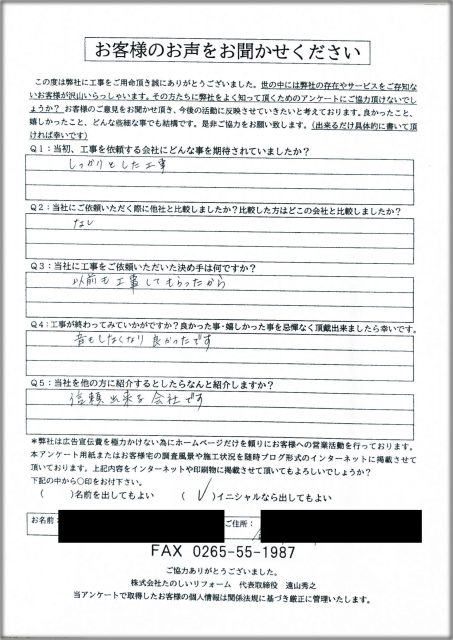 お客様のお声をお聞かせください
この度は弊社に工事をご用命頂き誠にありがとうございました。世の中には弊社の存在やサービスをご存知ないお客様が沢山いらっしゃいます。その方たちに弊社をよく知って頂くためのアンケートにご協力頂けないでしょうか?お客様のご意見をお聞かせ頂き、今後の活動に反映させていきたいと考えております。良かったこと、嬉しかったこと、どんな些細な事でも結構です。是非ご協力をお願い致します。(出来るだけ具体的に書いて頂ければ幸いです)
Q1:当初、工事を依頼する会社にどんな事を期待されていましたか?
しっかりとした工事
Q2:当社にご依頼いただく際に他社と比較しましたか?比較した方はどこの会社と比較しましたか?
なし
Q3:当社に工事をご依頼いただいた決め手は何ですか?
以前も工事してもらったから
Q4:工事が終わってみていかがですか?良かった事・嬉しかった事を忌憚なく頂戴出来ましたら幸いです。
音もしなくなり良かったです
Q5:当社を他の方に紹介するとしたらなんと紹介しますか?
信頼出来る会社です
*弊社は広告宣伝費を極力かけない為にホームページだけを頼りにお客様への営業活動を行っております。
本アンケート用紙またはお客様宅の調査風景や施工状況を随時ブログ形式のインターネットに掲載させて
頂いております。上記内容をインターネットや印刷物に掲載させて頂いてもよろしいでしょうか?
下記の中から○印をお付下さい。
( )名前を出してもよい ( ✓ )イニシャルなら出してもよい
お名前: ご住所:
FAX 0265-55-1987
ご協力ありがとうございました。
株式会社たのしいリフォーム 代表取締役 遠山秀之
当アンケートで取得したお客様の個人情報は関係法規に基づき厳正に管理いたします。